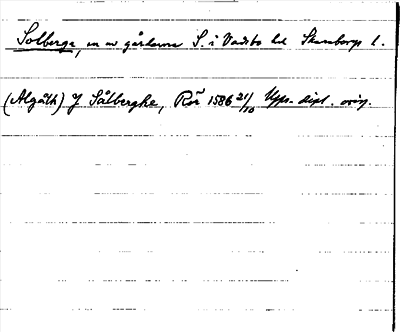 Solberga, en av gårdarna S. i Vadsbo hd Skaraborgs l.
(Algåth) J Sålberghe, Rör 1586 21/10 Upps. dipl. orig.